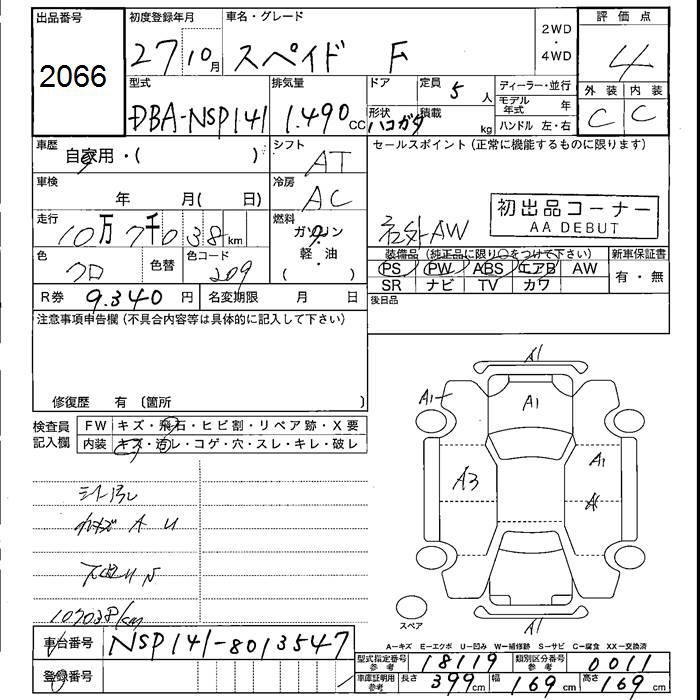 出品番号
2066
初度登録年月
27 10月
車名・グレード
スペイド F
2WD
・
4WD
評価点
4
外装 内装
C C
型式
DBA-NSP141
排気量
1.490cc
ドア
形状
ハコガタ
定員
5人
積載
kg
ディーラー・並行
モデル年式 年
ハンドル 左・右
車歴
自家用・( )
シフト
AT
セールスポイント(正常に機能するものに限ります)
車検
年 月( 日)
冷房
AC
初出品コーナー
AA DEBUT
社外AW
走行
10万7千038km
燃料
ガソリン
軽・油
( )
色
クロ
色替
色コード
209
装備品(純正品に限り○をつけて下さい)
PS PW ABS エアB AW
SR ナビ TV カワ
新車保証書
有・無
R券 9.340円
名変期限 月 日
後日品
注意事項申告欄(不具合内容等は具体的に記入して下さい)
修復歴 有 (箇所 )
検査員
記入欄
FW キズ・飛石・ヒビ割・リペア跡・X要
内装 キズ・汚レ・コゲ・穴・スレ・キレ・破レ
A1
A1
A1
A1
A3
A1
スペア
A1
107038km
車台番号 NSP141-8013547
登録番号
A-キズ E-エクボ U-凹み W-補修跡 S-サビ C-腐食 XX-交換済
型式指定番号
参考
18119
類別区分番号
参考
0011
車庫証明用
参考
長さ 399cm 幅 169cm 高さ 169cm